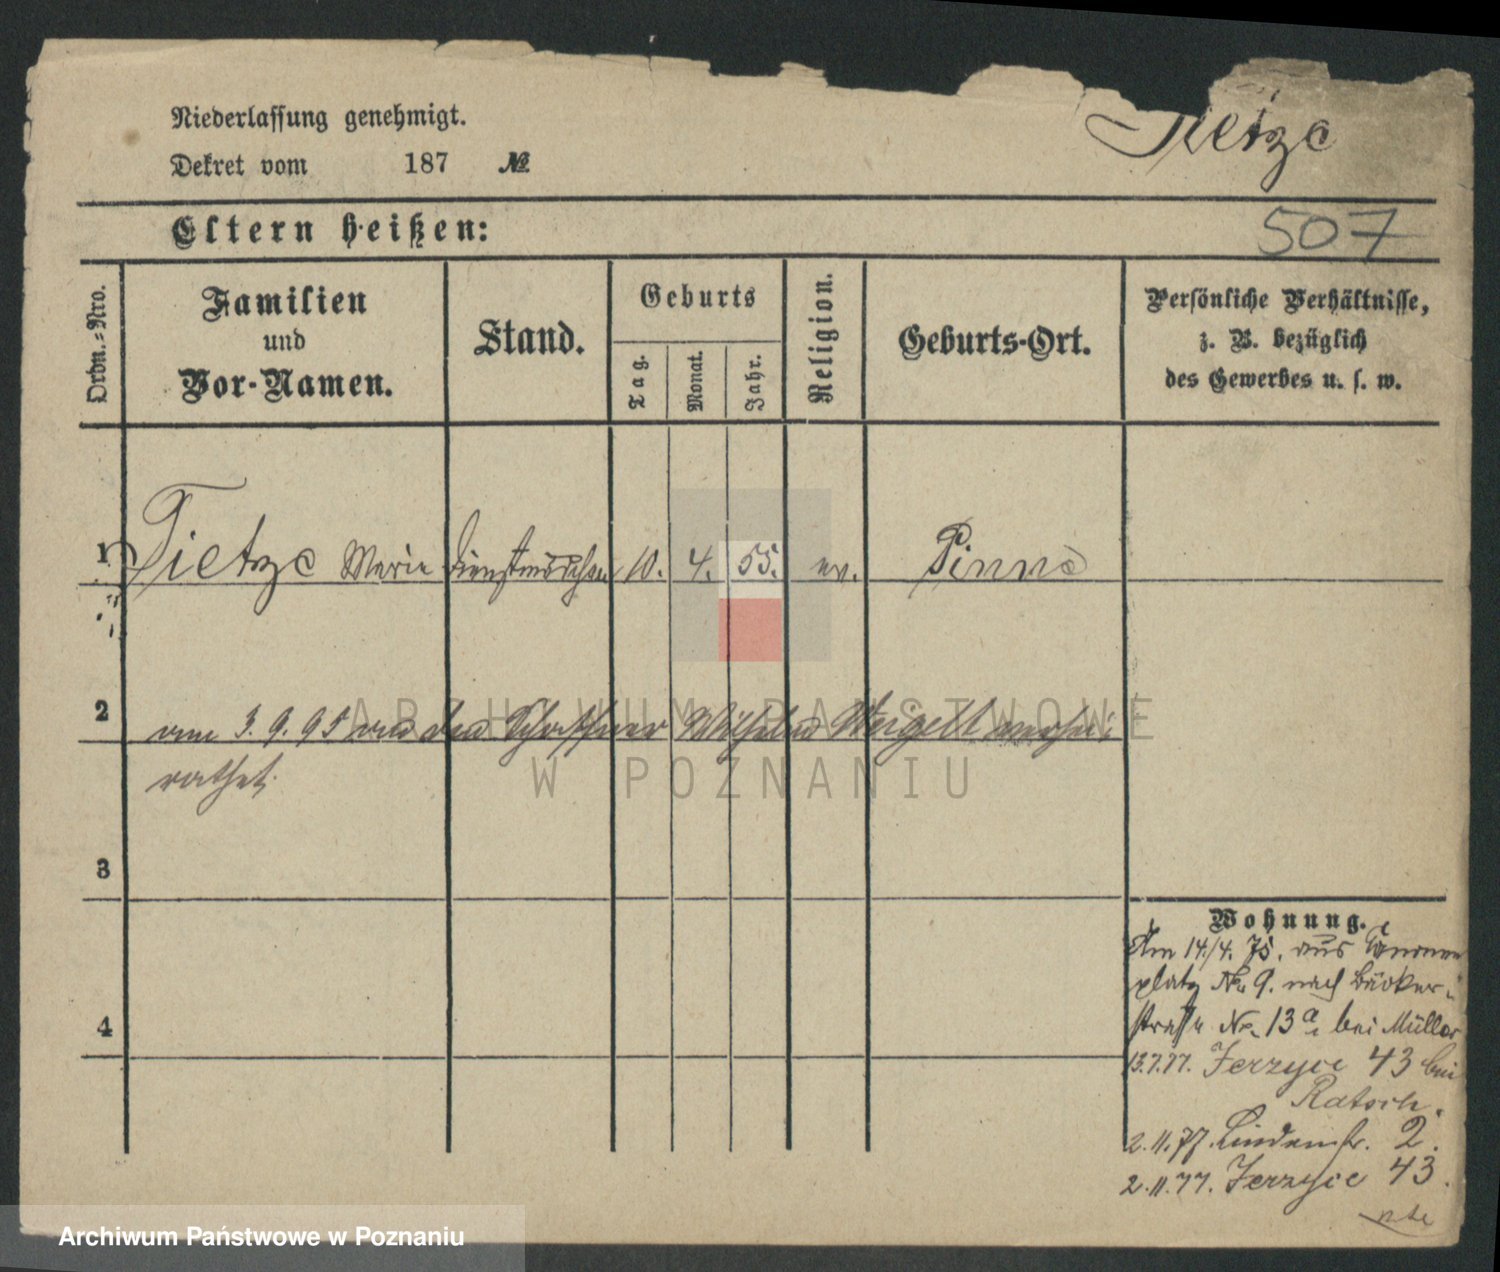 Tietze
Niederlassung genehmigt.
Dekret vom 187 №
507
Eltern heißen:
Ordn.=Nro.
Familien
und
Vor-Namen.
Stand.
Geburts
Tag.
Monat.
Jahr.
Religion.
Geburts-Ort.
Persönliche Verhältnisse,
z. B. bezüglich
des Gewerbes u. s. w.
1 Tietze Marie 10. 4. 55. ev. Pinne
2
3. 9. 95 den Schaffner Wilhelm Weigelt verhei-
rathet.
3
4
Wohnung.
Am 14./4. 75. aus Kanonen
platz No 9. nach Bäcker-
straße No 13a bei Müller
13.7.77. Jerzyce 43 bei
Ratsch.
2.11.77. Lindenstr. 2.
2.11.77. Jerzyce 43.
ARCHIWUM PAŃSTWOWE
W POZNANIU
Archiwum Państwowe w Poznaniu